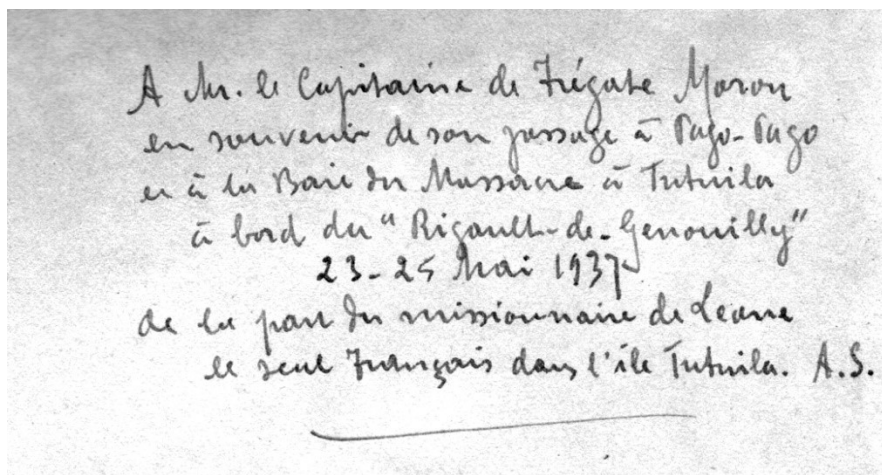 A Mr. le Capitaine de Frégate Moron
en souvenir de son passage à Pago-Pago
et à la Baie du Massacre à Tutuila
à bord du "Rigault-de-Genouilly"
23-25 Mai 1937
de la part du missionnaire de Leone
le seul Français dans l'île Tutuila. A.S.